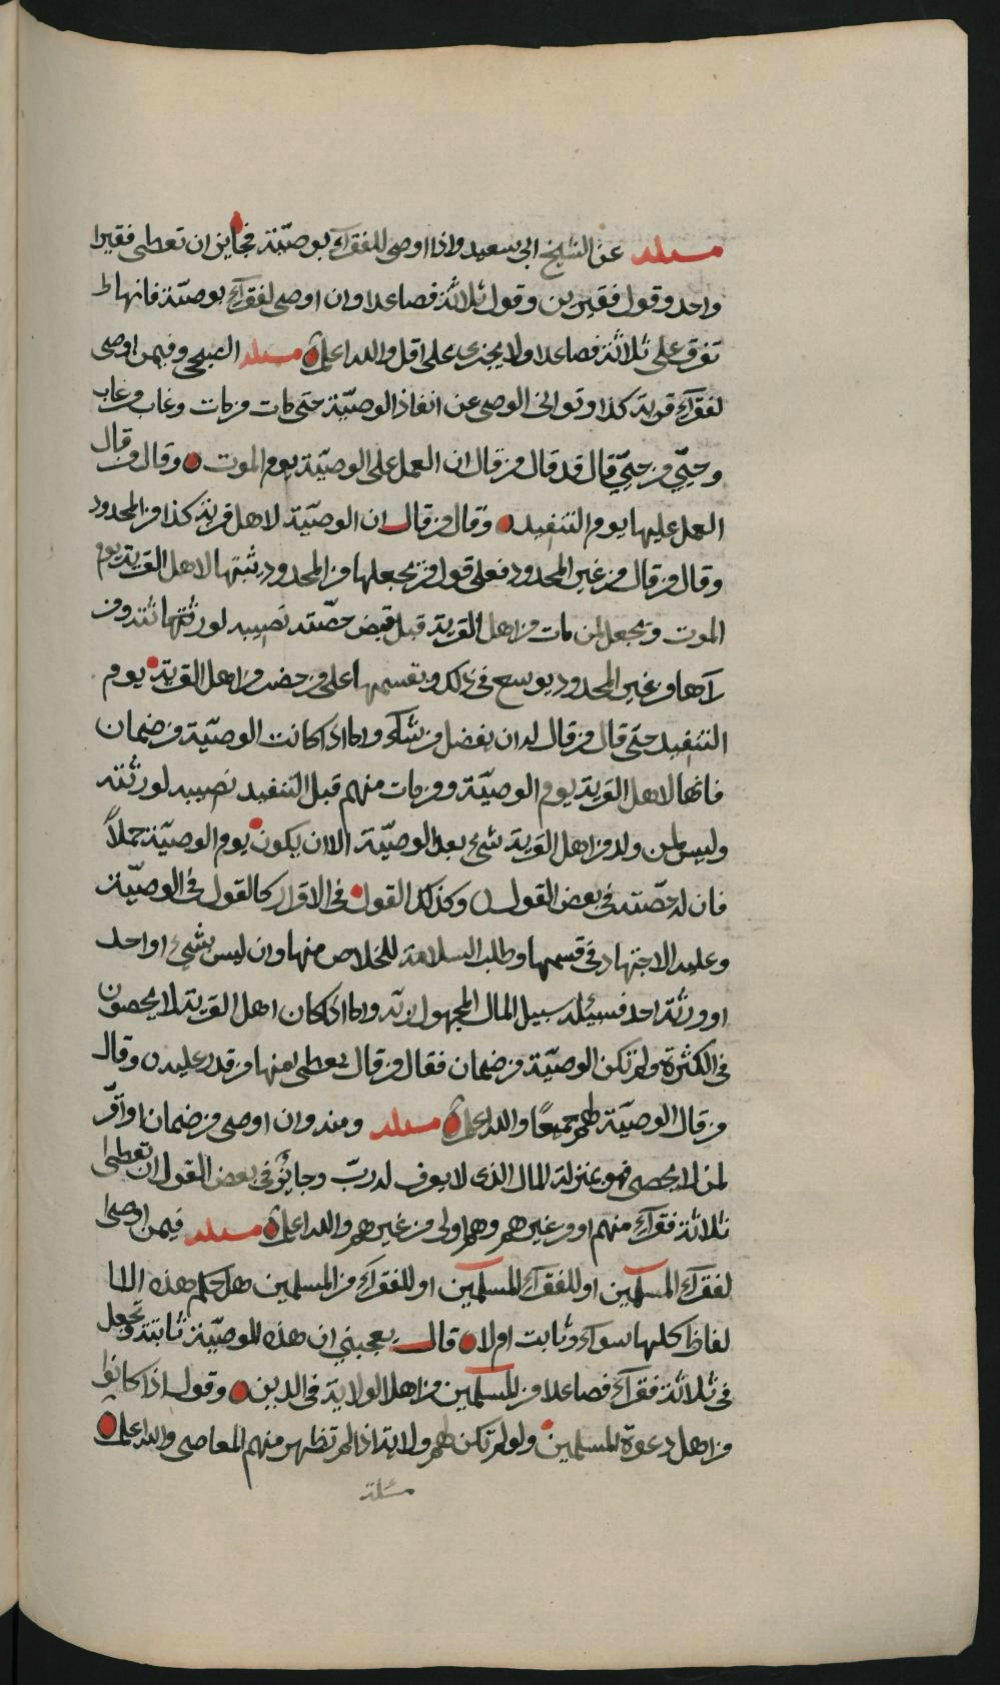 مسئلة عن الشيخ ابي سعيد واذا اوصى للفقرآء بوصيّة فجايز ان تعطى فقيرا
واحد وقول فقيرين وقول ثلاثة فصاعدا وان اوصى لفقرآء بوصيّة فانها
تفرق على ثلاثة فصاعدا ولا يجزي على اقل والله اعلم مسئلة الصبحي وفيمن اوصى
لفقرآء قرية كذا وتوانى الوصي عن انفاذ الوصيّة حتى مات من مات وغاب من غاب
وحيّي من حيّي قال قد قال من قال ان العمل على الوصيّة يوم الموت وقال من قال
العمل عليها يوم التنفيذ وقال من قال ان الوصيّة لاهل قرية كذا من المحدود
وقال من قال من غير المحدود فعلى قول من يجعلها من المحدود يثبتها لاهل القرية يوم
الموت ويجعل لمن مات من اهل القرية قبل قبض حصّته نصيبه لورثتها ثته ومن
رآها من غير المحدود يوسع في ذلك ويقسمها على من حضر من اهل القرية يوم
التنفيذ حتى قال من قال له ان يفضل من شآء واما اذا كانت الوصيّة من ضمان
فانها لاهل القرية يوم الوصيّة ومن مات منهم قبل التنفيذ نصيبه لورثته
وليس لمن ولد من اهل القرية شئ بعد الوصيّة الا ان يكون يوم الوصيّة حملاً
فان له حصّته في بعض القول وكذلك القول في الاقرار كالقول في الوصيّة
وعليه الاجتهاد في قسمها وطلب السلامة للخلاص منها وان ليس بشئ او احد
او ورثة احد فسبيله سبيل المال المجهول ربّه واما اذا كان اهل القرية لا يحصون
في الكثرة ولم تكن الوصيّة من ضمان فقال من قال يعطى منها من قدر عليه وقال
من قال الوصيّة لهم جميعًا والله اعلم مسئلة ومنه وان اوصى من ضمان او اقرّ
لمن لا يحصى فهو بمنزلة المال الذي لا يعرف له ربّ وجايز في بعض القول ان تعطى
ثلاثة فقرآء منهم او من غيرهم وهم اولى من غيرهم والله اعلم مسئلة فيمن اوصى
لفقرآء المسلمين او للفقرآء المسلمين او للفقرآء من المسلمين هل حكم هذه الا
لفاظ كلها سوآء وثابت ام لا قال يعجبني ان هذه الوصيّة ثابتة وتجعل
في ثلاثة فقرآء فصاعدا من المسلمين من اهل الولاية في الدين وقول اذا كانوا
من اهل دعوة المسلمين ولو لم تكن لهم ولاية اذا لم تظهر منهم المعاصي والله اعلم
مسئلة